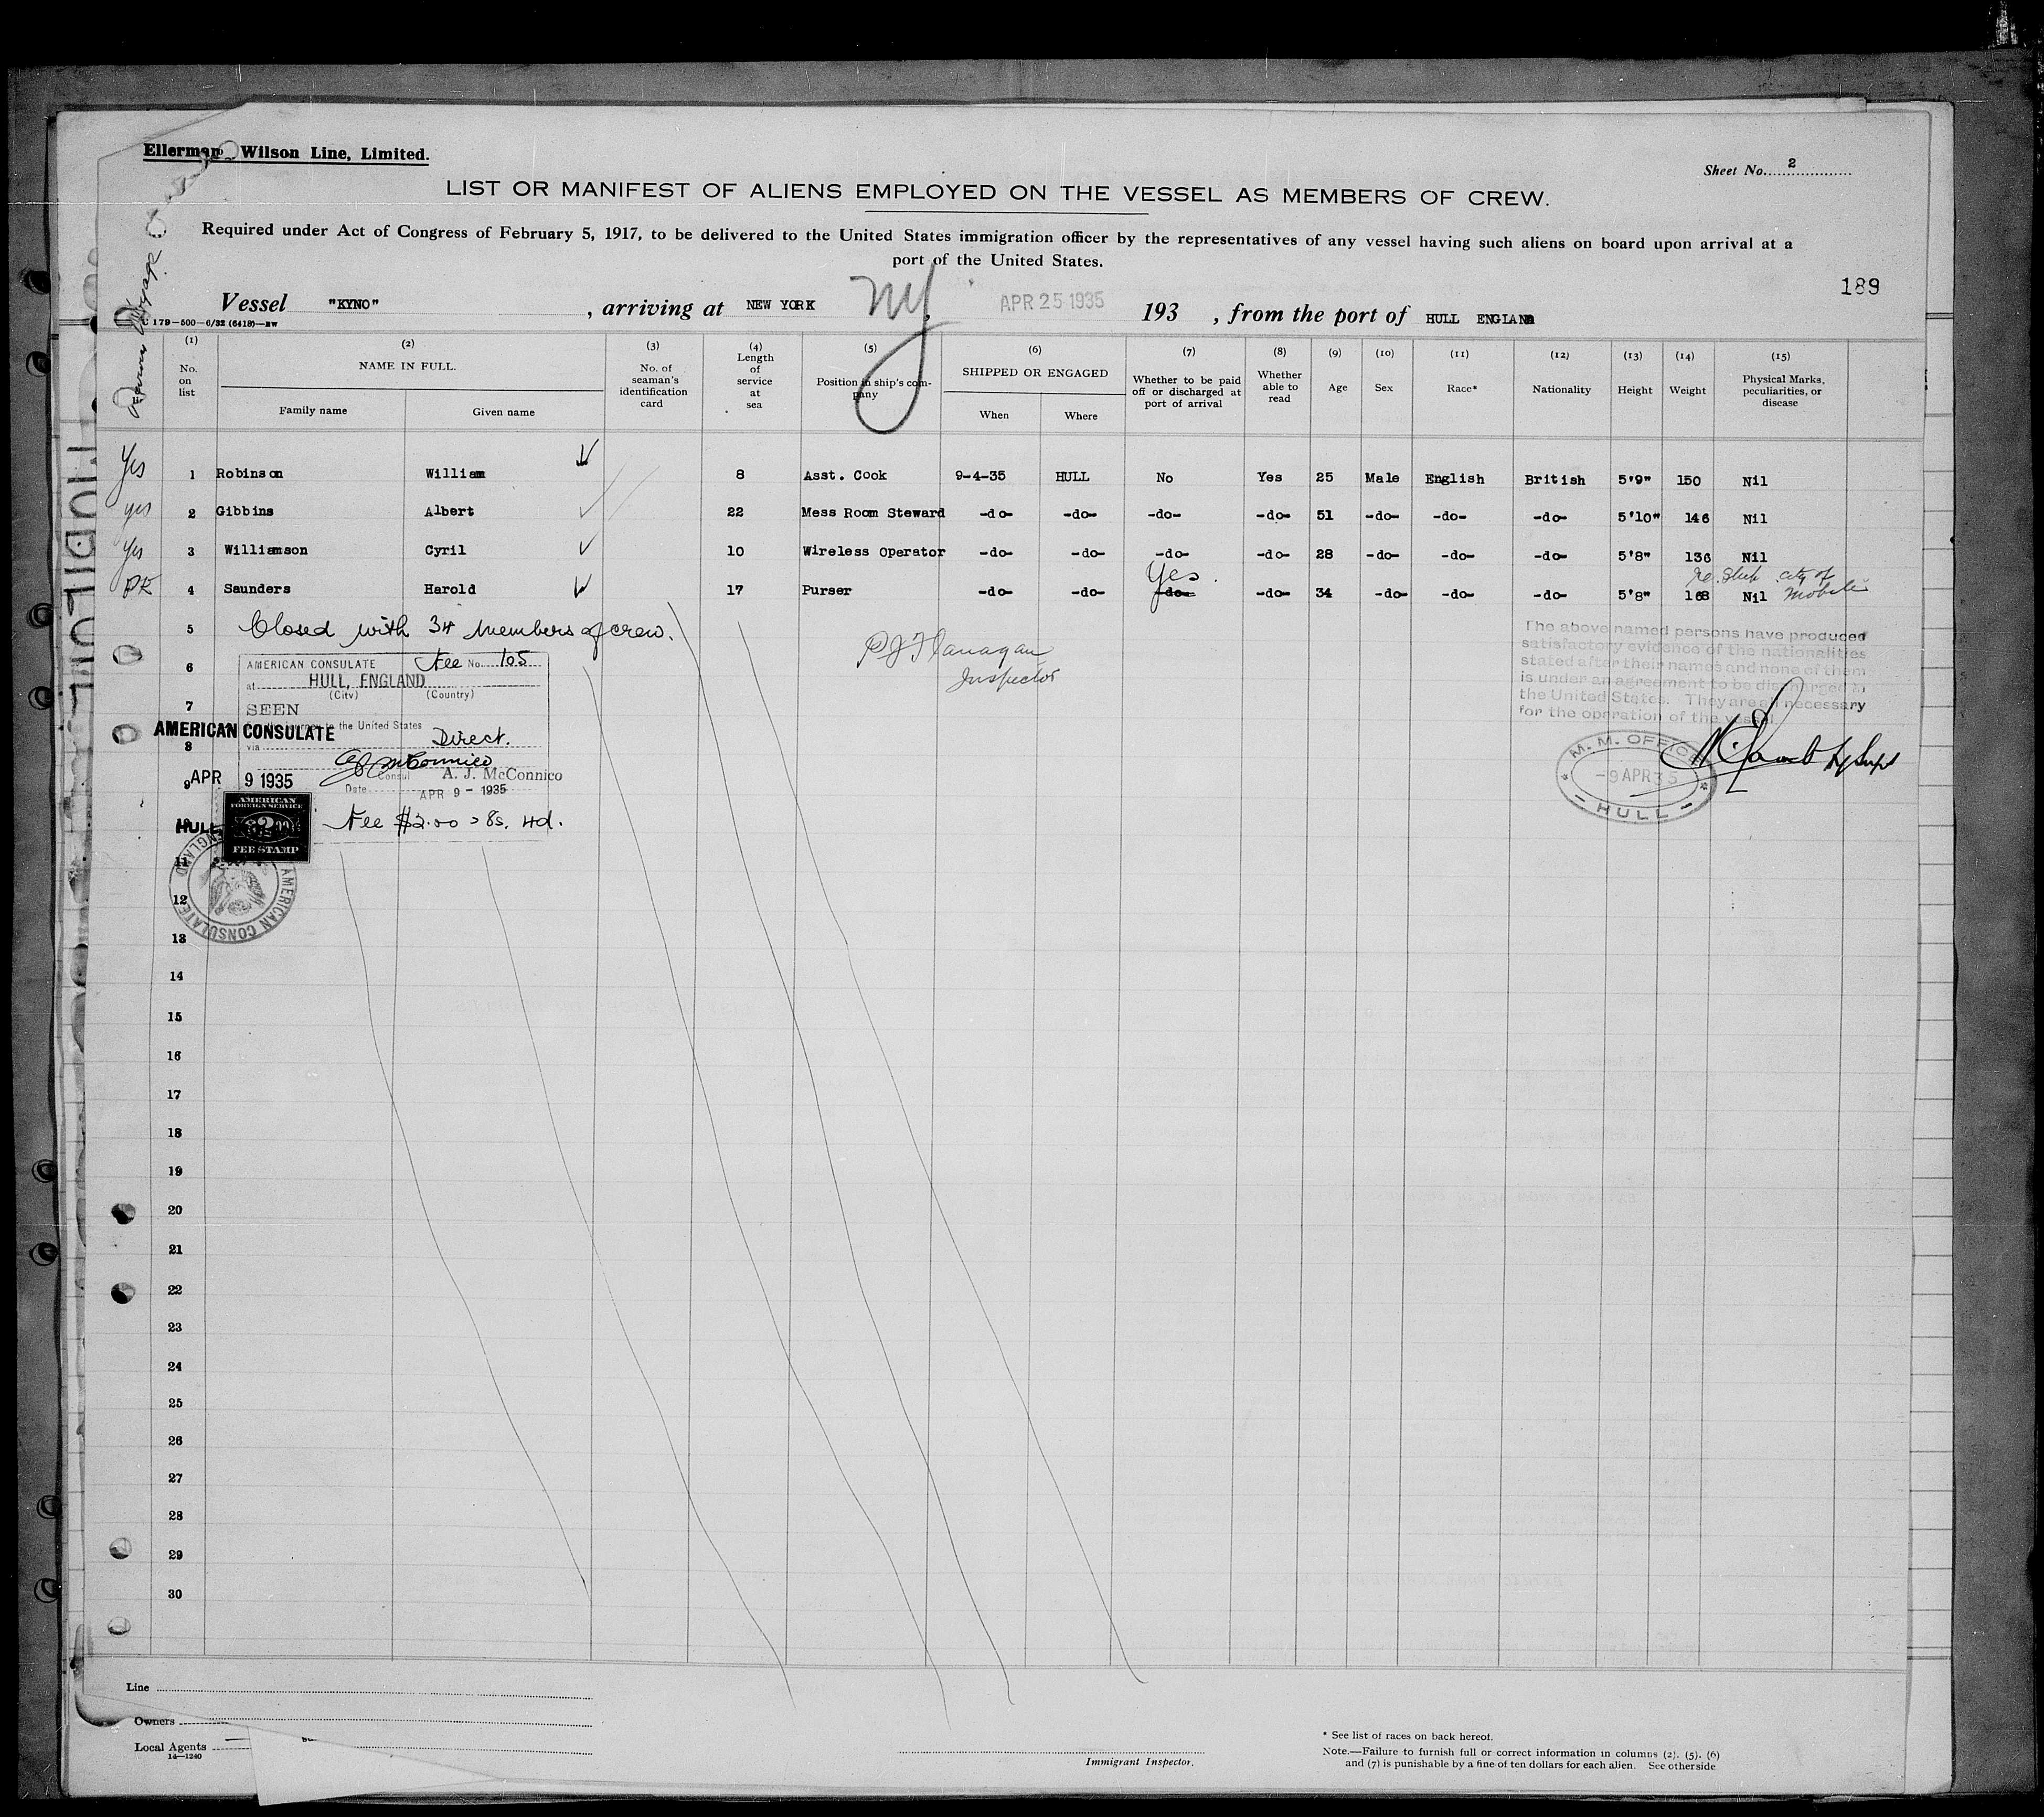 Ellerman Wilson Line, Limited.
Sheet No. 2
LIST OR MANIFEST OF ALIENS EMPLOYED ON THE VESSEL AS MEMBERS OF CREW.
Required under Act of Congress of February 5, 1917, to be delivered to the United States immigration officer by the representatives of any vessel having such aliens on board upon arrival at a
port of the United States.
189
Vessel "KYNO", arriving at NEW YORK NY, APR 25 1935 193 , from the port of HULL ENGLAND
C 179—500—6/32 (6418)—BW
(1) No. on list
(2) NAME IN FULL.
Family name Given name
(3) No. of seaman's identification card
(4) Length of service at sea
(5) Position in ship's company
(6) SHIPPED OR ENGAGED
When Where
(7) Whether to be paid off or discharged at port of arrival
(8) Whether able to read
(9) Age
(10) Sex
(11) Race*
(12) Nationality
(13) Height
(14) Weight
(15) Physical Marks, peculiarities, or disease
Yes 1 Robinson William 8 Asst. Cook 9-4-35 HULL No Yes 25 Male English British 5'9" 150 Nil
yes 2 Gibbins Albert 22 Mess Room Steward -do- -do- -do- -do- 51 -do- -do- -do- 5'10" 146 Nil
Yes 3 Williamson Cyril 10 Wireless Operator -do- -do- -do- -do- 28 -do- -do- -do- 5'8" 136 Nil
Yes
re. Ship city of
4 Saunders Harold 17 Purser -do- -do- -do- -do- 34 -do- -do- -do- 5'8" 168 Nil Mobile
5 Closed with 34 members of crew.
PJ Flanagan
Inspector
The above named persons have produced
satisfactory evidence of the nationalities
stated after their names and none of them
is under an agreement to be discharged in
the United States. They are all necessary
for the operation of the vessel
6
AMERICAN CONSULATE Fee No. 105
at HULL, ENGLAND
(City) (Country)
7
SEEN
For the journey to the United States
AMERICAN CONSULATE
8
via Direct.
A. J. McConnico
Consul
9
APR 9 1935
Date APR 9 - 1935
M. M. OFFICE
-9 APR 35
HULL
10
HULL
AMERICAN
FOREIGN SERVICE
$2.00
FEE STAMP
Fee $2.00 = 8s. 4d.
AMERICAN CONSULATE ENGLAND
11
12
13
14
15
16
17
18
19
20
21
22
23
24
25
26
27
28
29
30
Line
Owners
Local Agents
14—1240
Immigrant Inspector.
* See list of races on back hereof.
Note.—Failure to furnish full or correct information in columns (2), (5), (6)
and (7) is punishable by a fine of ten dollars for each alien. See other side